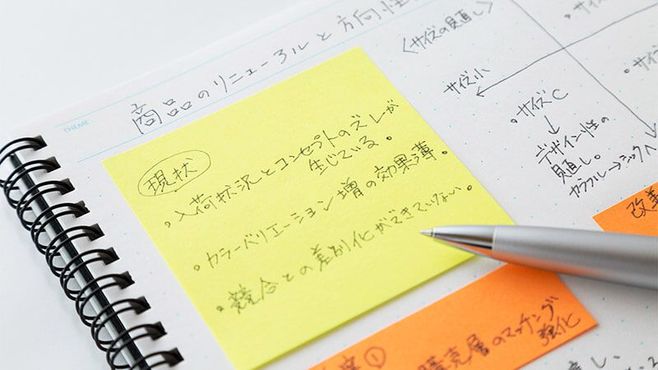 THEME
商品のリニューアルと方向性
現状
・入荷状況とコンセプトのズレが
生じている。
・カラーバリエーション増の効果薄。
・競合との差別化ができていない。
<サイズの見直し>
サイズ小
・サイズC
↓
デザイン性の
見直し。
カラフル→シックへ
・サイズ
・サイ
改善
①
購売層のマッチング
強化